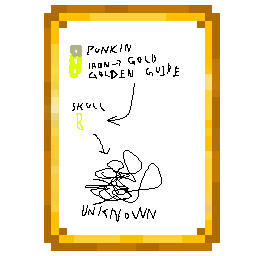 PUNKIN
IRON → GOLD
GOLDEN GUIDE
SKULL
UNKNOWN